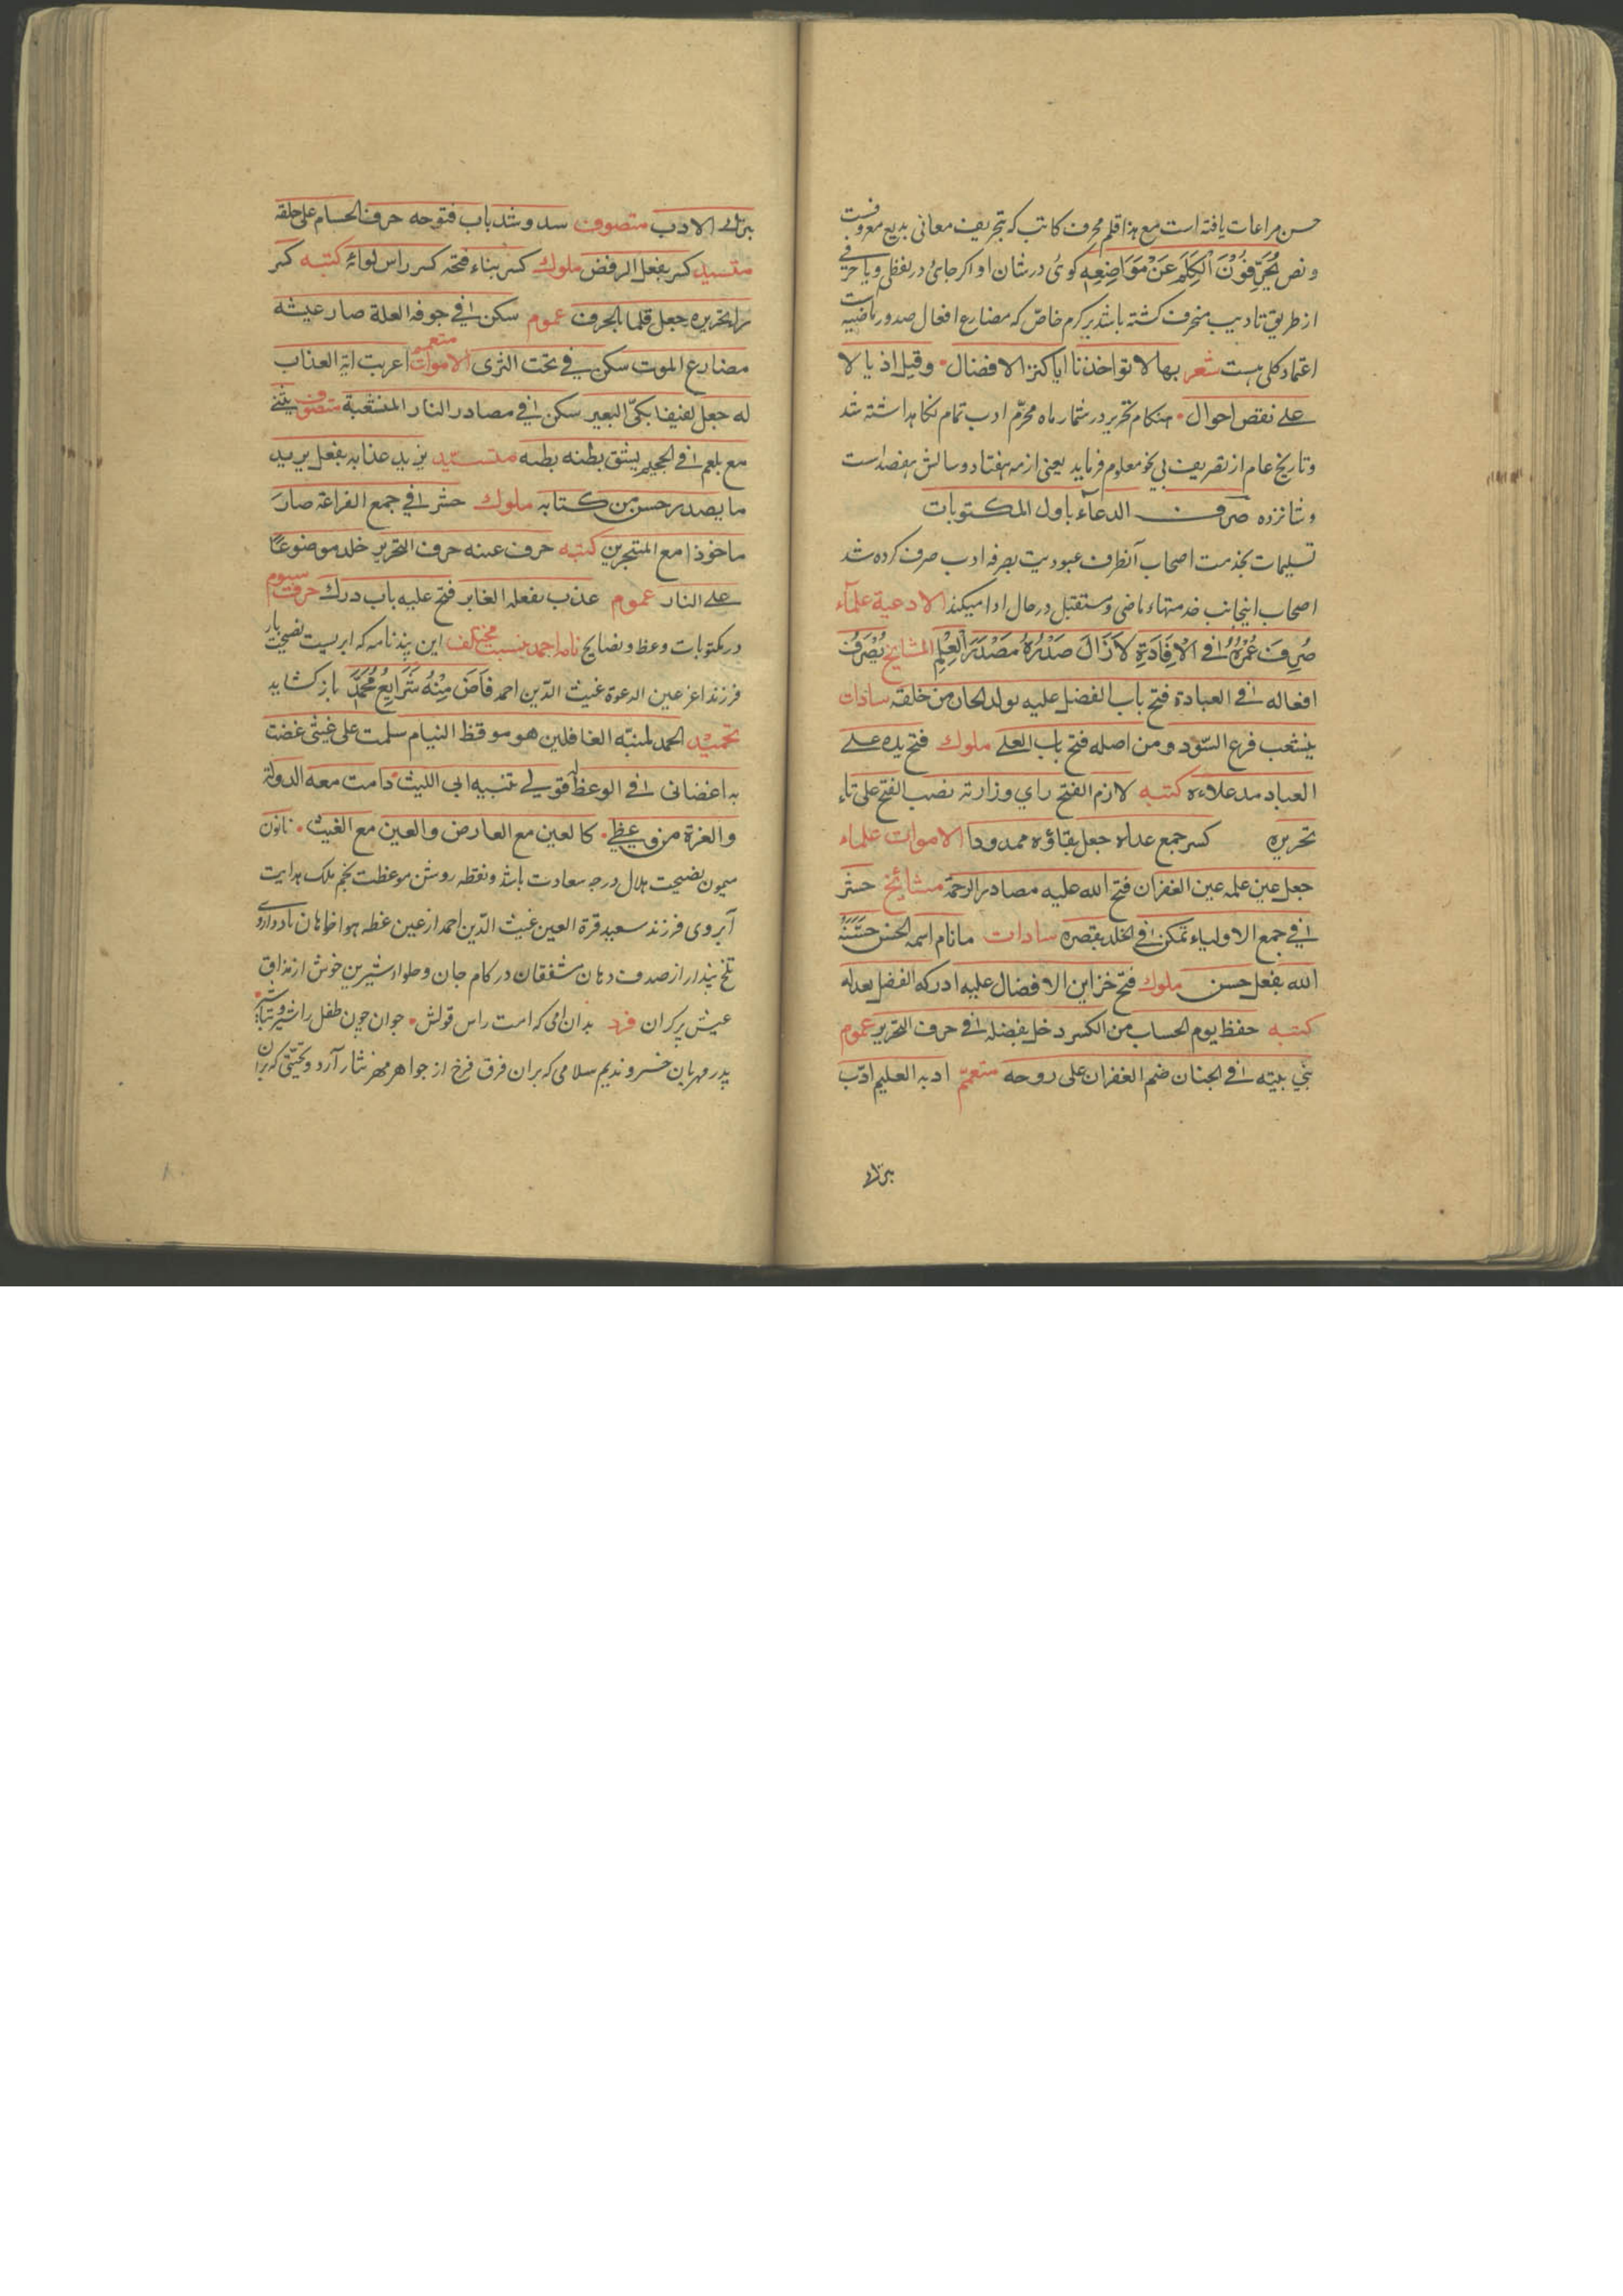 حسن مراعات یافته است مع هذا قلم محرف کاتب که بتحریف معانی بدیع معروفست
و نص یُحَرِّفُوْنَ الْکَلِمَ عَنْ مَوَاضِعِهِ کوئی در شان او اکر جائی در لفظی و یا حرفی
از طریق تادیب منحرف کشته باشد بر کرم خاص که مضارع افعال صدور ماضیه است
اعتماد کلی هست شعر بها لا تواخذنا ایا کنز الافضال وقیل اذیالا
علی نقص احوال هنکام تحریر در شمار ماه محرّم ادب تمام نکاهداشته شد
و تاریخ عام از تصریف بی نحو معلوم فرماید یعنی از مه هفتاد و سالش هفصد است
و شانزده صرف الدعآء باول المکتوبات
تسلیمات بخدمت اصحاب آنطرف عبودیت بصرفه ادب صرف کرده شد
اصحاب اینجانب خدمتهاء ماضی و مستقبل در حال ادا میکنند الادعیة علمآء
صُرِفَ عُمْرُهُ فی الْاِفَادَةِ لَازَالَ صَدْرُهُ مَصْدَرَ الْعِلْمِ المشایخ یُصْرَفُ
افعاله فی العبادة فتح باب الفضل علیه بولد الحان من خلقه سادات
ینشعب فرع السّؤدد من اصله فتح باب العلی ملوك فتح یده علی
العباد مد علاءه کتبه لازم الفتح رای وزارته نصب الفتح علی تاء
تحریره کسر جمع عداه جعل بقاؤه ممدودا الاموات علماء
جعل عین علمه عین الغفران فتح الله علیه مصادر الرحمة مشائخ حشر
فی جمع الاولیاء تمکن فی الخلد بقصره سادات مانام اسمه الحسن حَسَّنَهُ
الله بفعل حسن ملوك فتح خزاین الافضال علیه ادرکه الفضل بعدله
کتبه حفظ یوم الحساب من الکسر دخل بفضله فی حرف التحریر عموم
بنی بیته فی الجنان ضم الغفران علی روحه متعمّم ادبه العلیم ادّب
بترك
بترك الادب متصوف سد و شد باب فتوحه حرف الحسام علی حلقه
متسید کسر بفعل الرفض ملوك کسر بناء فتحه کسر راس لوائه کتبه کسر
را تحریره جعل قلما بالحرف عموم سکن فی جوفه العلة صار عیشه
مضارع الموت سکن فی تحت الثری الاموات متعمم اعربت ایة العذاب
له جعل لفیفا بکیّ البعیر سکن فی مصادر النار المنشعبة متصوف ینفی
مع بلعم فی الجحیم یشق بطنه بطنه متسیّد یزید عذابه بفعل یزید
ما یصدر حسن من کتابه ملوك حشر فی جمع الفراعة صار
ماخوذا مع المتجرین کتبه حرف عینه حرف التحریر خلد موضوعًا
علی النار عموم عذب بفعله الغابر فتح علیه باب درك حرف سیوم
در مکتوبات وعظ و نصایح نامه احمد بنسبت مختلف این پندنامه که ابریست نصیحت بار
فرزند اعز عین الدعوة غیث الدّین احمد فَاَضَ مِنْهُ شَرَایِعُ مُحَمَّدٍ باز کشاید
تحمید الحمد لمنبّه الغافلین هو موقظ النیام سلمت علی غیثی غضت
به اغضانی فی الوعظ قولی تنبیه ابی اللیث دامت معه الدولة
والعزة من وعظی کالعین مع العارض والعین مع الغیث تا نون
میمون نصیحت هلال درجه سعادت باشد و نقطه روشن موعظت نجم فلک هدایت
آبروی فرزند سعید قرة العین غیث الدّین احمد از عین غطه هواخواهان باد و داروی
تلخ پندار از صدف دهان مشفقان در کام جان و حلواء شیرین خوش از مذاق
عیش پرکران فرد بدان امی که امت راس قولش جوان چون طفل را شیر و شبانه
پدر مهربان خسرو ندیم سلامی که بران فرق فرخ از جواهر مهر نثار آرد و تحیّتی که بران